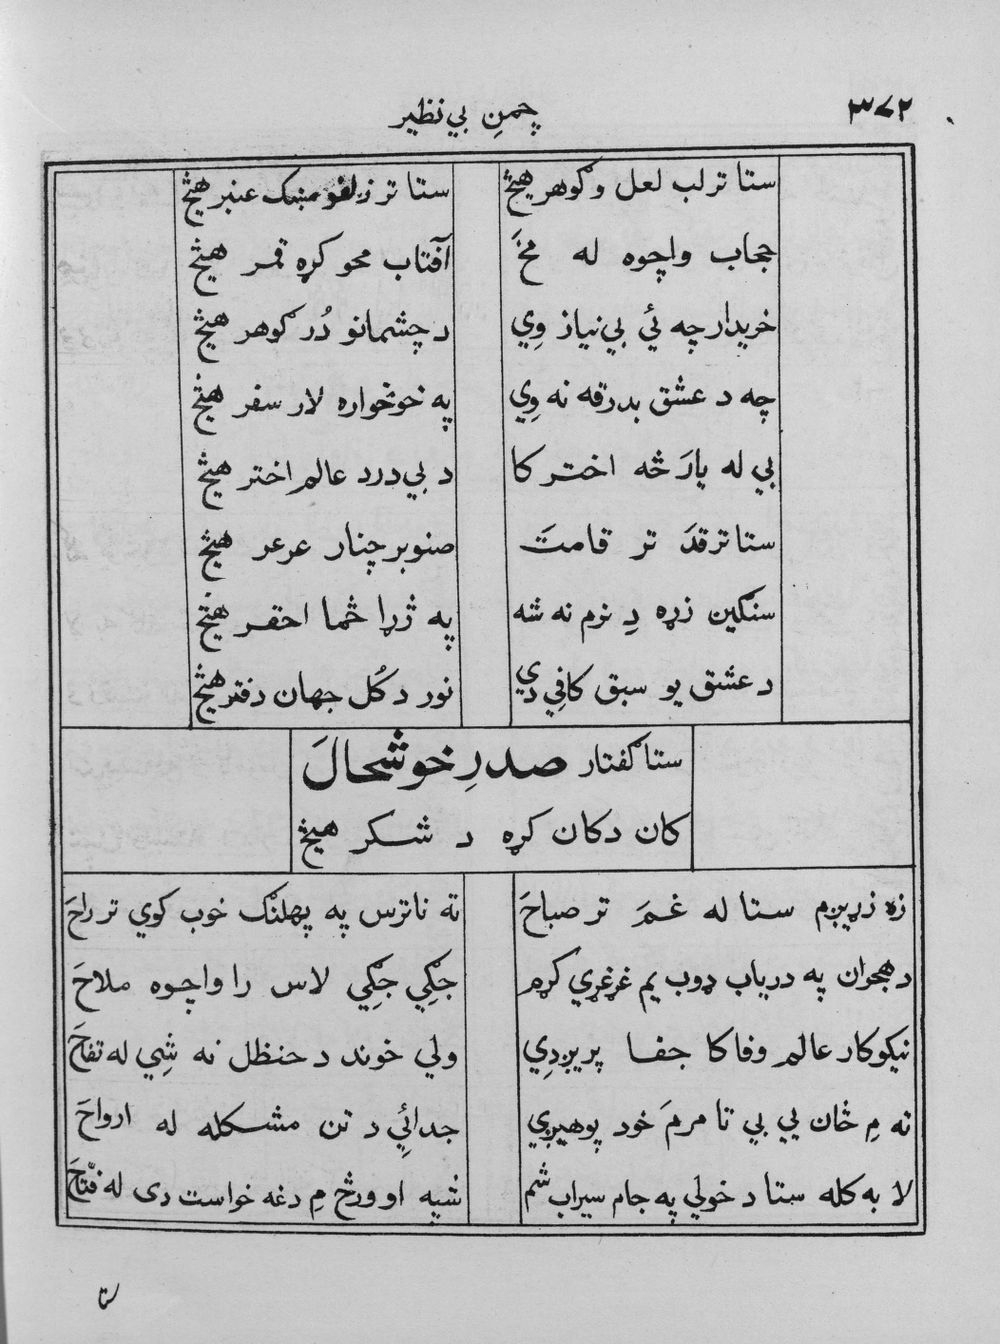 ۳۷۲
چمنِ بي نظير
ستا تر لب لعل و ګوهر هيڅ
ستا تر زلفو مښک عنبر هيڅ
حجاب واچوه له مخَ
آفتاب محو کړه قمر هيڅ
خريدار چه ئي بي نياز وِي
د چشمانو دُر ګوهر هيڅ
چه د عشق بدرقه نه وِي
په خونخواره لار سفر هيڅ
بي له يارَ څه اختر کا
د بي درد عالم اختر هيڅ
ستا تر قدَ تر قامتَ
صنوبر چنار عرعر هيڅ
سنګين زړه دِ نرم نه شه
په ژړا څما احقر هيڅ
د عشق يو سبق کافي دي
نور د کُل جهان دفتر هيڅ
ستا ګفتار صدرِ خوشحالَ
کان دکان کړه د شکر هيڅ
زه زړيږم ستا له غمَ تر صباحَ
ته ناترس په پهلنګ خوب کوي تر راحَ
د هجران په درياب ډوب يم غړغړي کړم
جګي جګي لاس را واچوه ملاحَ
نيکوکار عالم وفا کا جفا پريږدِي
ولي خوند د حنظل نه شِي له تفاحَ
ته مِ ځان يي بي تا مرمَ خود پوهيږي
جدائي د تن مشکله له ارواحَ
لا به کله ستا د خولي په جام سيراب شم
شپه او ورځ مِ دغه خواست دی له فتّاحَ
ستا